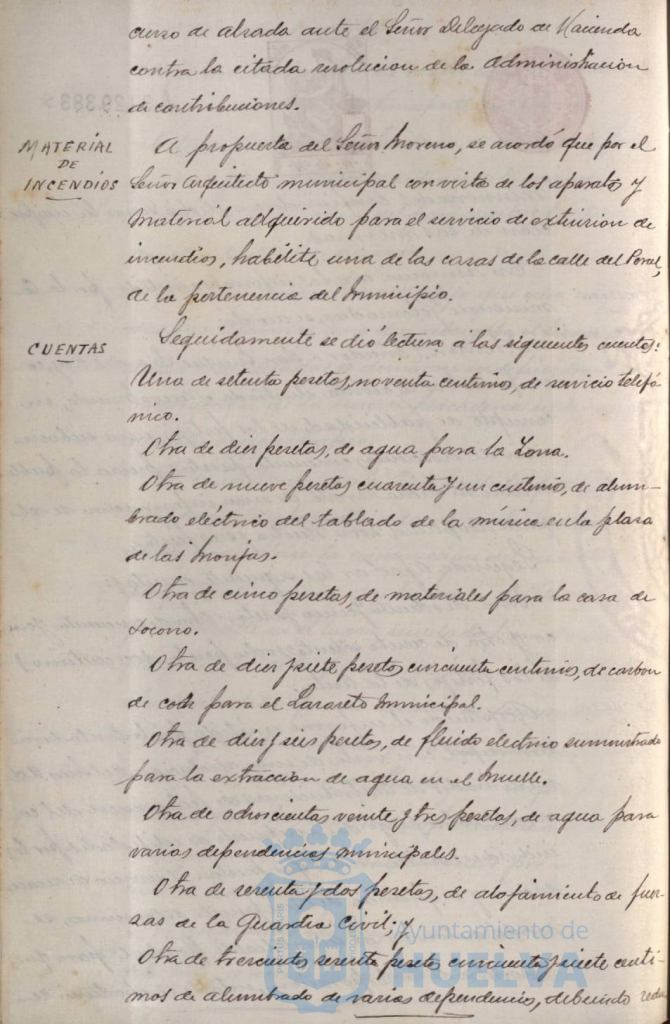 curso de alzada ante el Señor Delegado de Hacienda
contra la citada resolucion de la Administracion
de contribuciones.
MATERIAL
DE
INCENDIOS
A propuesta del Señor Moreno, se acordó que por el
Señor Arquitecto municipal con vista de los aparatos y
material adquirido para el servicio de extincion de
incendios, habilite una de las casas de la calle del Poral,
de la pertenencia del Municipio.
CUENTAS
Seguidamente se dió lectura á las siguientes cuentas:
Una de setenta pesetas, noventa centimos, de servicio telefó
nico.
Otra de diez pesetas, de agua para la Zona.
Otra de nueve pesetas cuarenta y un centimos, de alum-
brado eléctrico del tablado de la música en la plaza
de las Monjas.
Otra de cinco pesetas, de materiales para la casa de
Socorro.
Otra de diez y siete pesetas cincuenta centimos, de carbon
de cok para el Lazareto Municipal.
Otra de diez y seis pesetas, de fluido electrico suministrado
para la extraccion de agua en el Muelle.
Otra de ochocientas veinte y tres pesetas, de agua para
varias dependencias municipales.
Otra de sesenta y dos pesetas, de alojamiento de fuer-
zas de la Guardia Civil; y
Otra de trescientas sesenta pesetas cincuenta y siete centi-
mos de alumbrado de varias dependencias, debiendo
Ayuntamiento de
HUELVA